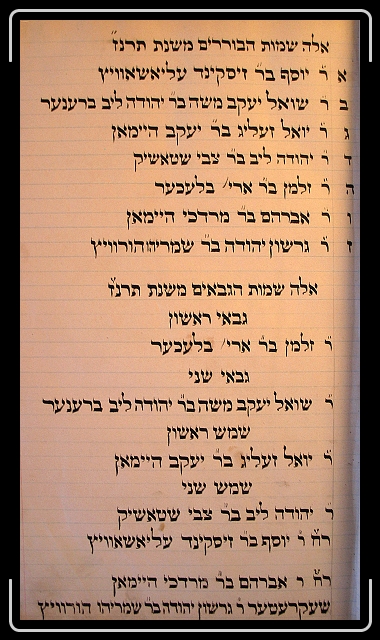 אלה שמות הבוררים משנת תרנ״ז
א ר׳ יוסף בר׳ זיסקינד עליאשאוויץ
ב ר׳ שואל יעקב משה בר׳ יהודה ליב ברענער
ג ר׳ יואל זעליג בר׳ יעקב היימאן
ד ר׳ יהודה ליב בר׳ צבי שטאשיק
ה ר׳ זלמן בר׳ ארי׳ בלעכער
ו ר׳ אברהם בר׳ מרדכי היימאן
ז ר׳ גרשון יהודה בר׳ שמריהו הורוויץ
אלה שמות הגבאים משנת תרנ״ז
גבאי ראשון
ר׳ זלמן בר׳ ארי׳ בלעכער
גבאי שני
ר׳ שואל יעקב משה בר׳ יהודה ליב ברענער
שמש ראשון
ר׳ יואל זעליג בר׳ יעקב היימאן
שמש שני
ר׳ יהודה ליב בר׳ צבי שטאשיק
ר״ח ר׳ יוסף בר׳ זיסקינד עליאשאוויץ
ר״ח ר׳ אברהם בר׳ מרדכי היימאן
שעקרעטער ר׳ גרשון יהודה בר׳ שמריהו הורוויץ